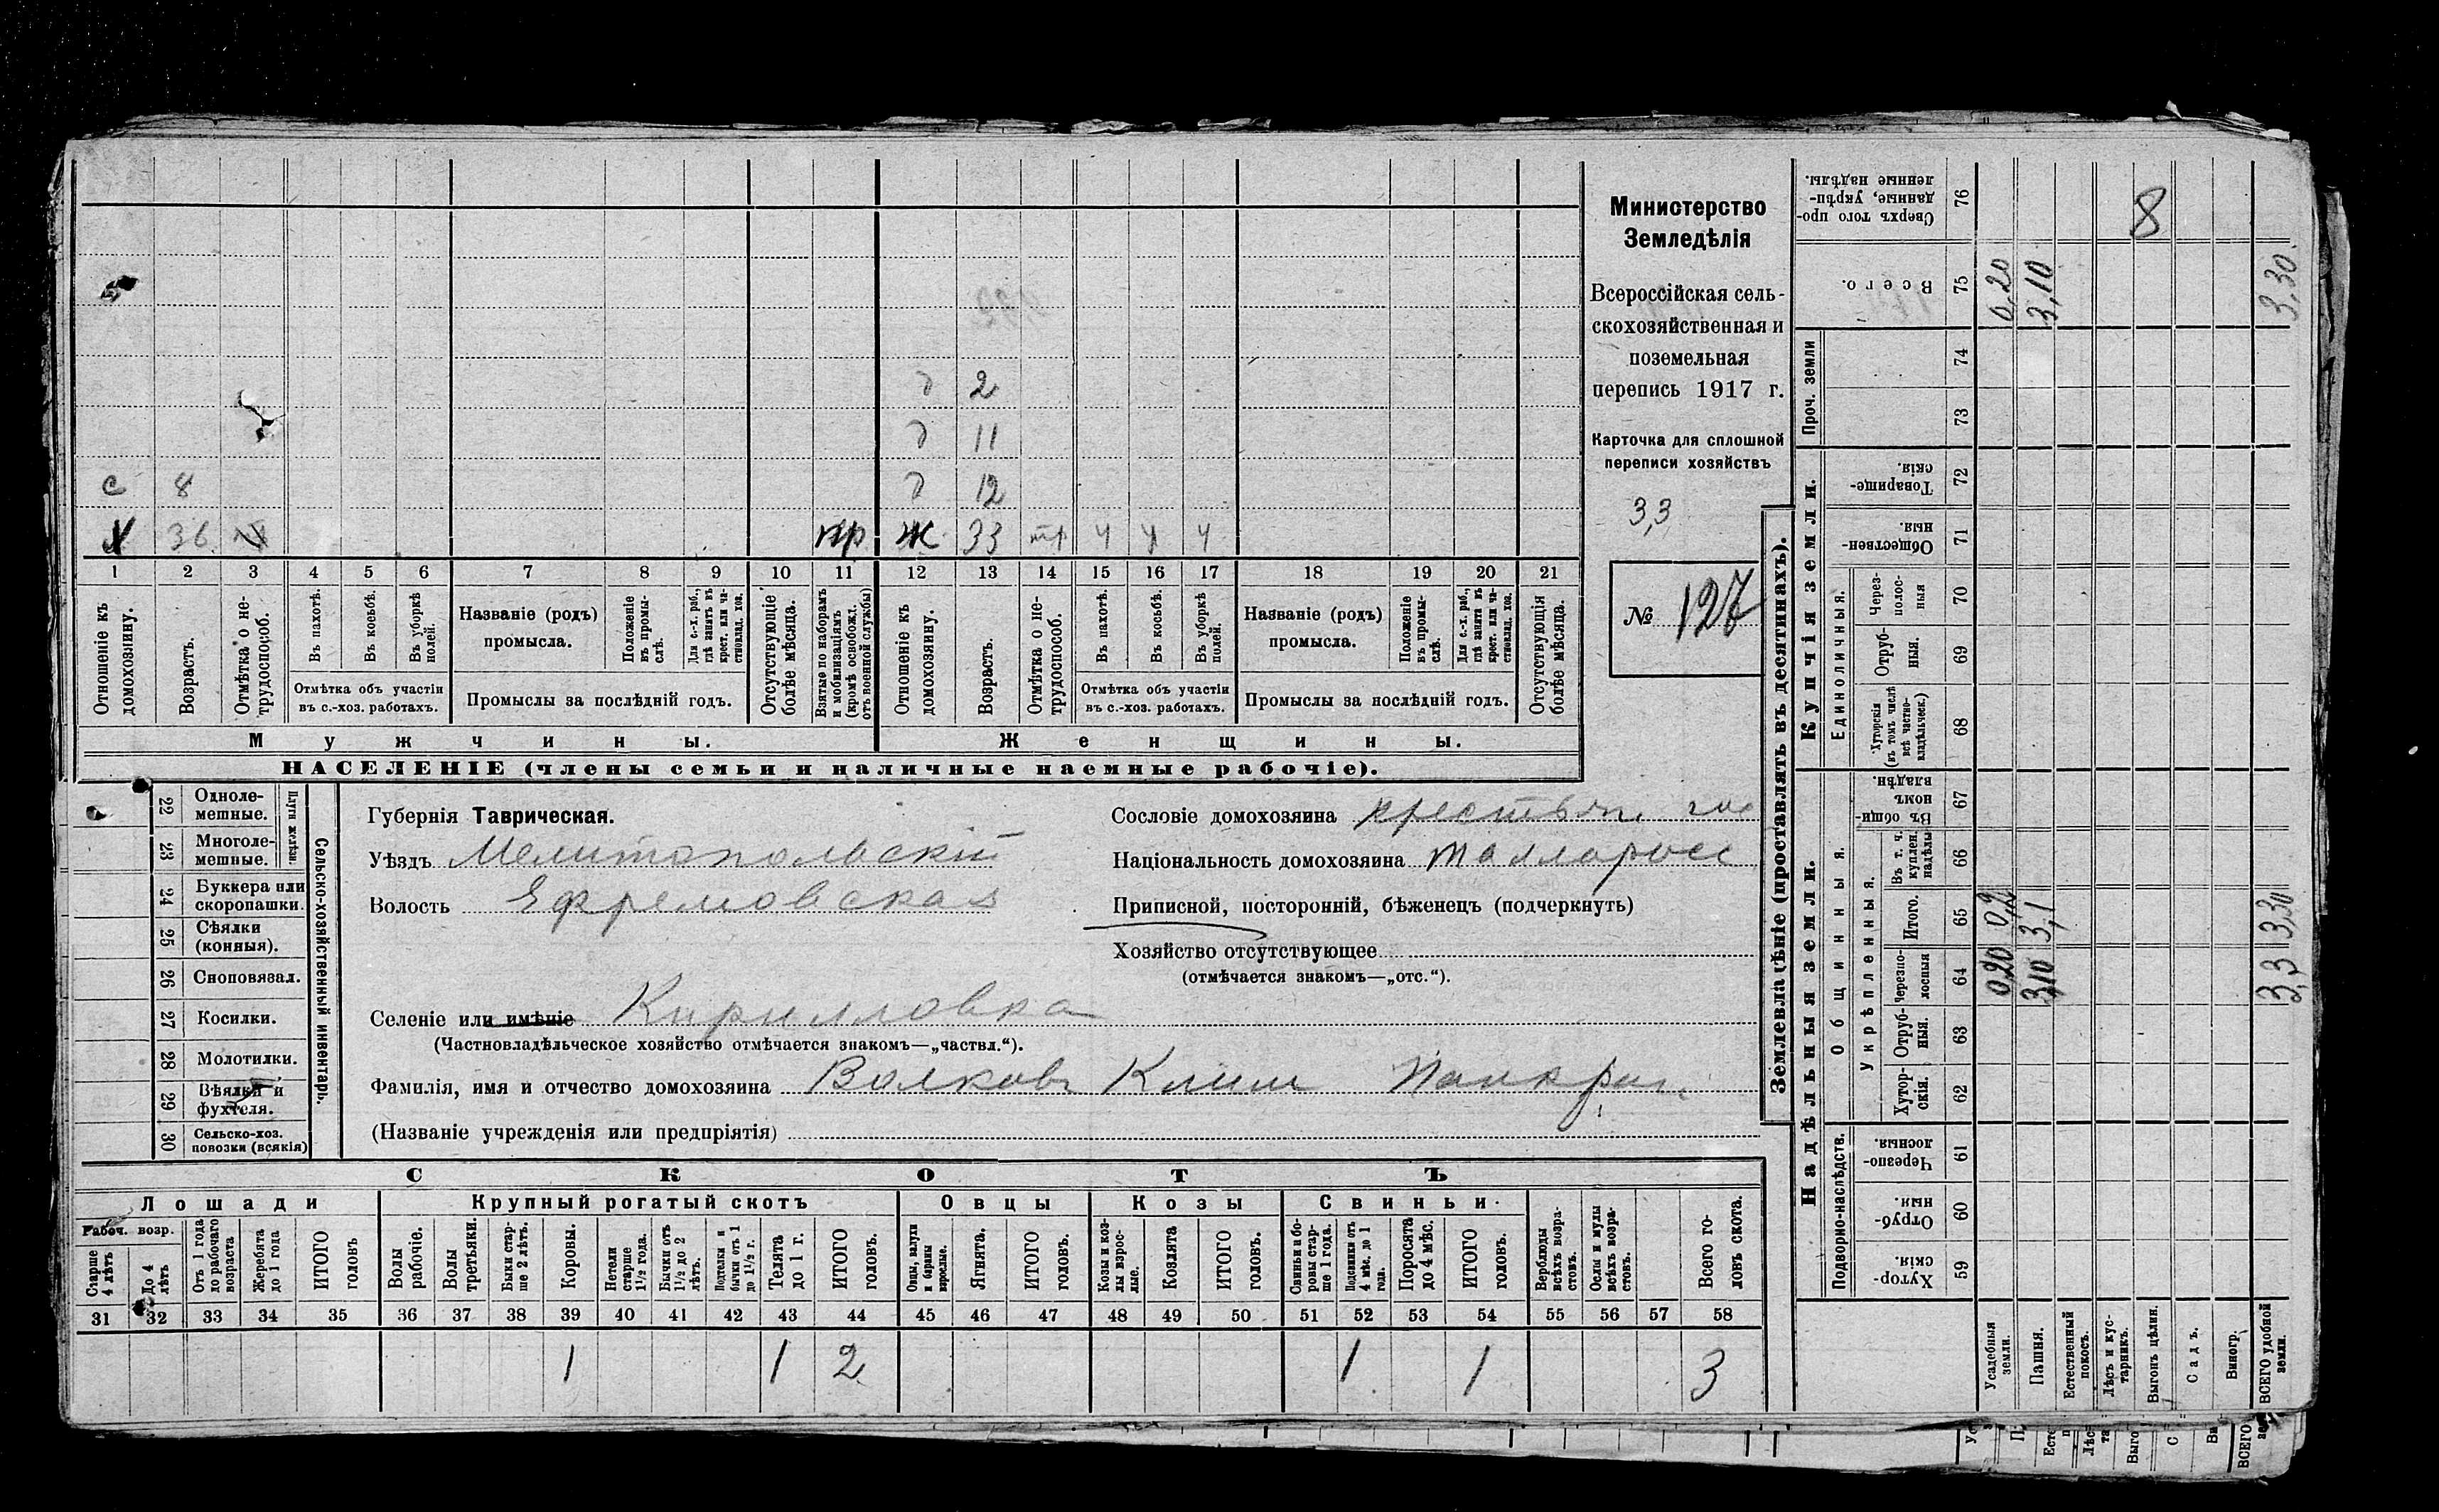 Министерство
Земледѣлія
Всероссійская сель-
скохозяйственная и
поземельная
перепись 1917 г.
Карточка для сплошной
переписи хозяйствъ
3,3
№ 127
д 2
д 11
с 8 д 12
х 36 пр ж 33 тр ч ч ч
1 2 3 4 5 6 7 8 9 10 11 12 13 14 15 16 17 18 19 20 21
Отношеніе къ домохозяину.
Возрастъ.
Отмѣтка о не-трудоспособ.
Въ пахотѣ.
Въ косьбѣ.
Въ уборкѣ полей.
Отмѣтка объ участіи
въ с.-хоз. работахъ.
Названіе (родъ)
промысла.
Положеніе въ промы-слѣ.
Для с.-х. раб., гдѣ занятъ въ крест. или ча-стновлад. хоз.
Промыслы за послѣдній годъ.
Отсутствующіе болѣе мѣсяца.
Взятые по наборамъ и мобилизаціямъ (кромѣ освобожд. отъ военной службы)
Отношеніе къ домохозяину.
Возрастъ.
Отмѣтка о не-трудоспособ.
Въ пахотѣ.
Въ косьбѣ.
Въ уборкѣ полей.
Отмѣтка объ участіи
въ с.-хоз. работахъ.
Названіе (родъ)
промысла.
Положеніе въ промы-слѣ.
Для с.-х. раб., гдѣ занятъ въ крест. или ча-стновлад. хоз.
Промыслы за послѣдній годъ.
Отсутствующія болѣе мѣсяца.
Мужчины. Женщины.
НАСЕЛЕНІЕ (члены семьи и наличные наемные рабочіе).
Сельско-хозяйственный инвентарь.
Плуги желѣзн.
22 Одноле-мешные.
23 Многоле-мешные.
24 Буккера или скоропашки.
25 Сѣялки (конныя).
26 Сноповязал.
27 Косилки.
28 Молотилки.
29 Вѣялки и фухтеля.
30 Сельско-хоз. повозки (всякія)
Губернія Таврическая.
Уѣздъ Мелитопольскій
Волость Ефремовская
Селеніе или имѣніе Кирилловка
(Частновладѣльческое хозяйство отмѣчается знакомъ—„частвл.“).
Фамилія, имя и отчество домохозяина Волковъ Клим Панкр.
(Названіе учрежденія или предпріятія)
Сословіе домохозяина крестьян.
Національность домохозяина малларосс
Приписной, посторонній, бѣженецъ (подчеркнуть)
Хозяйство отсутствующее
(отмѣчается знакомъ—„отс.“).
СКОТЪ
Лошади Крупный рогатый скотъ Овцы Козы Свиньи
Рабоч. возр.
Старше 4 лѣтъ
До 4 лѣтъ
Отъ 1 года до рабочаго возраста
Жеребята до 1 года
ИТОГО головъ
Волы рабочіе.
Волы третьяки.
Быки стар-ше 2 лѣтъ.
Коровы.
Нетели старше 1½ года.
Бычки отъ 1½ до 2 лѣтъ.
Подтелки и бычки отъ 1 до 1½ г.
Телята до 1 г.
ИТОГО головъ.
Овцы, валухи и бараны взрослые.
Ягнята.
ИТОГО головъ.
Козы и коз-лы взрос-лые.
Козлята
ИТОГО головъ.
Свиньи и бо-ровы стар-ше 1 года.
Подсвинки отъ 4 мѣс. до 1 года.
Поросята до 4 мѣс.
ИТОГО головъ.
Верблюды всѣхъ возра-стовъ.
Ослы и мулы всѣхъ возра-стовъ.
Всего го-ловъ скота.
31 32 33 34 35 36 37 38 39 40 41 42 43 44 45 46 47 48 49 50 51 52 53 54 55 56 57 58
1 1 2 1 1 3
Землевладѣніе (проставлять въ десятинахъ).
Надѣльныя земли. Купчія земли.
Подворно-наслѣдств.
Общинныя.
Укрѣпленныя.
Единоличныя.
Проч. земли
Хутор-скія. 59
Отруб-ныя. 60
Черезпо-лосныя. 61
Хутор-скія. 62
Отруб-ныя. 63
Черезпо-лосныя 64
Итого. 65
Въ т. ч. куплен. надѣлы 66
Въ общин-номъ владѣн. 67
Хуторскія (въ томъ числѣ всѣ частно-владѣльческ.) 68
Отруб-ныя. 69
Через-полос-ныя 70
Обществен-ныя. 71
Товарище-скія. 72
73
74
Всего. 75
Сверхъ того про-данные, укрѣп-ленные надѣлы. 76
Усадебныя земли. 0,20 0,2 0,20
Пашня. 3,10 3,1 3,10
Естественный покосъ.
Лѣсъ и кус-тарникъ.
Выгонъ цѣлин. 8
Садъ.
Виногр.
ВСЕГО удобной земли. 3,3 3,30 3,30.